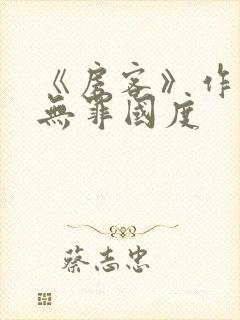 《房客》作
無罪國度
蔡志忠